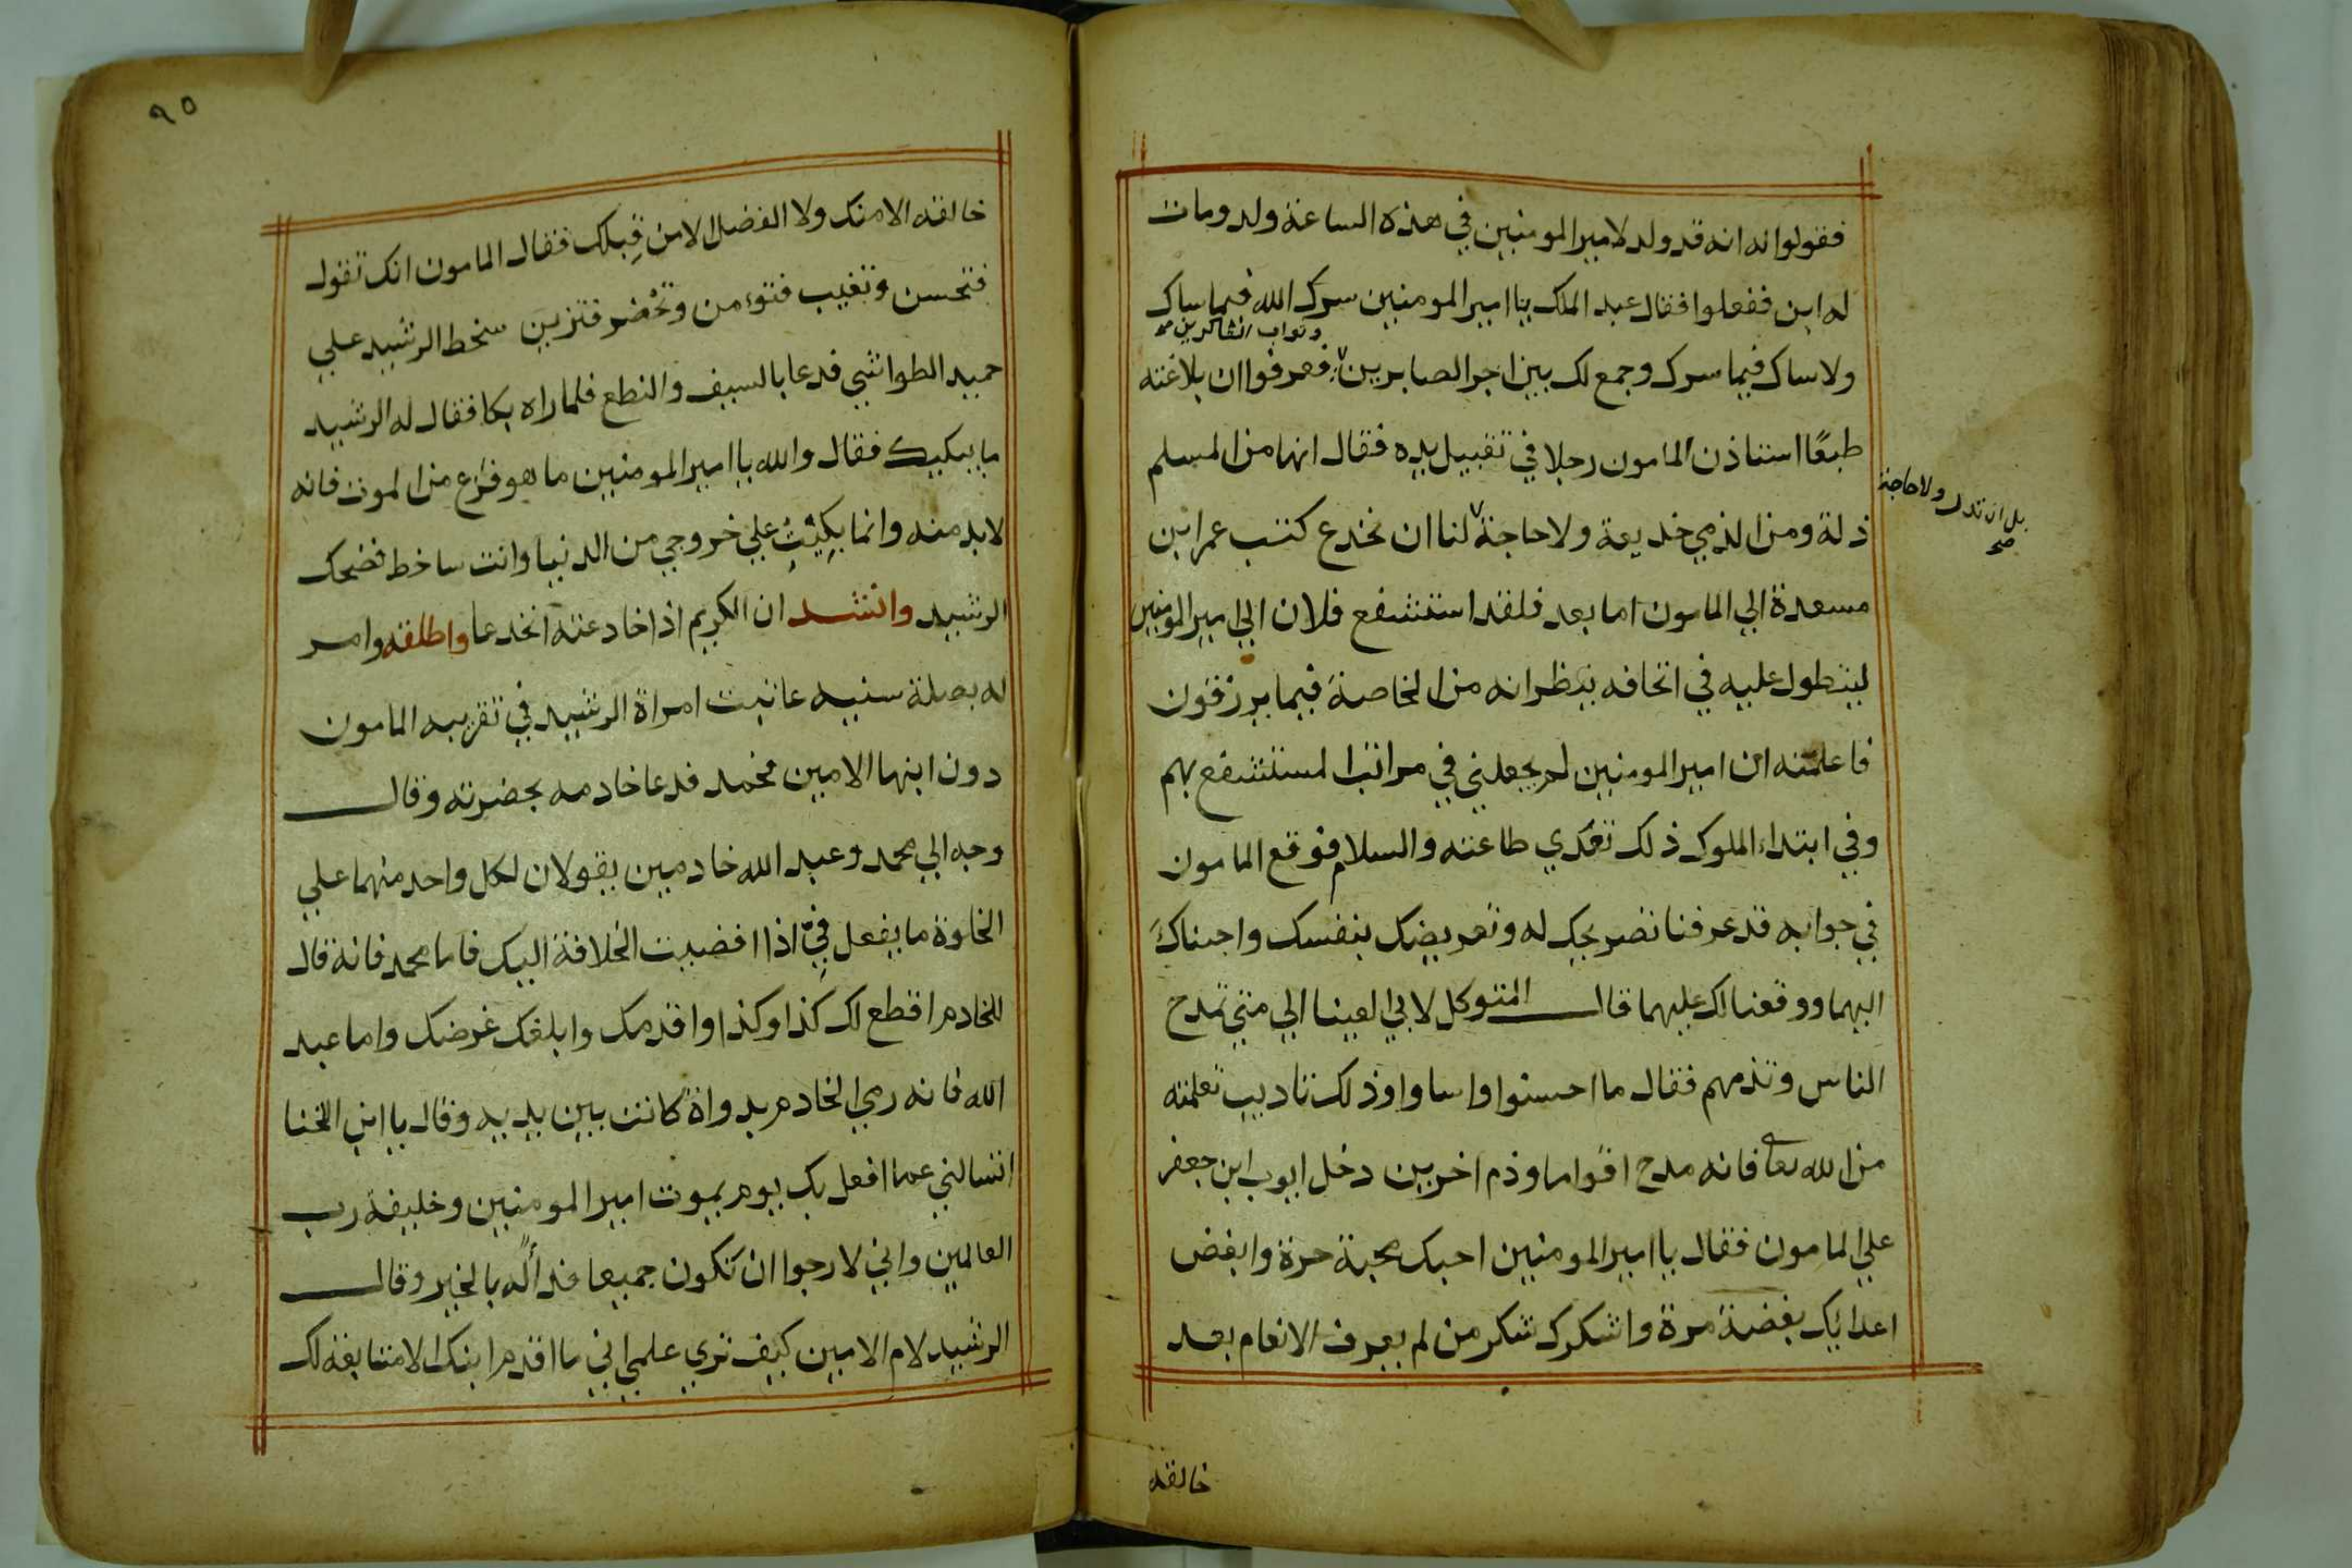 فقولوا له انه قد ولد لامير المومنين في هذه الساعة ولد ومات
له ابن ففعلوا فقال عبد الملك يا امير المومنين سرك الله فيما ساك
وثواب الشاكرين صح
ولا ساك فيما سرك وجمع لك بين اجر الصابرين فعرفوا ان بلاغته
طبعًا استاذن المامون رجلا في تقبيل يده فقال انها من المسلم
بل ان تذل ولا حاجة
صح
ذلة ومن الذمي خديعة ولا حاجة لنا ان نخدع كتب عمر ابن
مسعدة الي المامون اما بعد فلقد استشفع فلان الي امير المومنين
ليتطول عليه في الحافه بنظرانه من الخاصة فيما يرزقون
فاعلمته ان امير المومنين لم يجعلني في مراتب المستشفع بهم
وفي ابتداء الملوك ذلك تعدي طاعته والسلام فوقع المامون
في جوابه قد عرفنا تصريحك له وتعريضك بنفسك واجبناك
اليهما ووقفناك عليهما قال المتوكل لابي العينا الي متي تمدح
الناس وتذمهم فقال ما احسنوا واساوا وذلك تاديب تعلمته
من الله تعالى فانه مدح اقواما وذم اخرين دخل ايوب ابن جعفر
علي المامون فقال يا امير المومنين احبك محبة حرة وابغض
اعدائك بغضة مرة واشكرك شكر من لم يعرف الانعام بعد
خالقه
٩٥
خالقه الا منك ولا الفضل الا من قِبلك فقال المامون انك تقول
فتحسن وتغيب فتوءمن وتحْضر فتزين سخط الرشيد علي
حميد الطواشي فدعا بالسيف والنطع فلما راه بكا فقال له الرشيد
ما يبكيك فقال والله يا امير المومنين ما هو فزع من الموت فانه
لابد منه وانما بكيت علي خروجي من الدنيا وانت ساخط فضحك
الرشيد وانشد ان الكريم اذا خادعته انخدعا واطلقه وامر
له بصلة سنيه عاتبت امراة الرشيد في تقريبه المامون
دون ابنها الامين محمد فدعا خادمه بحضرته وقال
وجه الي محمد وعبد الله خادمين يقولان لكل واحد منهما علي
الخلوة ما يفعل فيّ اذا افضيت الخلافة اليك فاما محمد فانه قال
للخادم اقطع لك كذا وكذا واقدمك وابلغك غرضك واما عبد
الله فانه رمي الخادم بدواة كانت بين يديه وقال يا ابن الخنا
اتسالني عما افعل بك يوم يموت امير المومنين وخليفة رب
العالمين واني لارجوا ان نكون جميعا فداً له بالخير وقال
الرشيد لام الامين كيف تري علمي اني ما اقدم ابنك الا متابعة لك